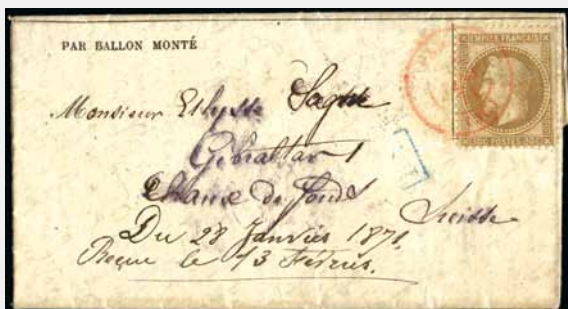 PAR BALLON MONTÉ
EMPIRE FRANÇAIS
Monsieur Ulysse Sagne
Gibraltar 1
Chaux de Fonds
Suisse
Du 28 Janvier 1871.
Reçue le 13 Février.